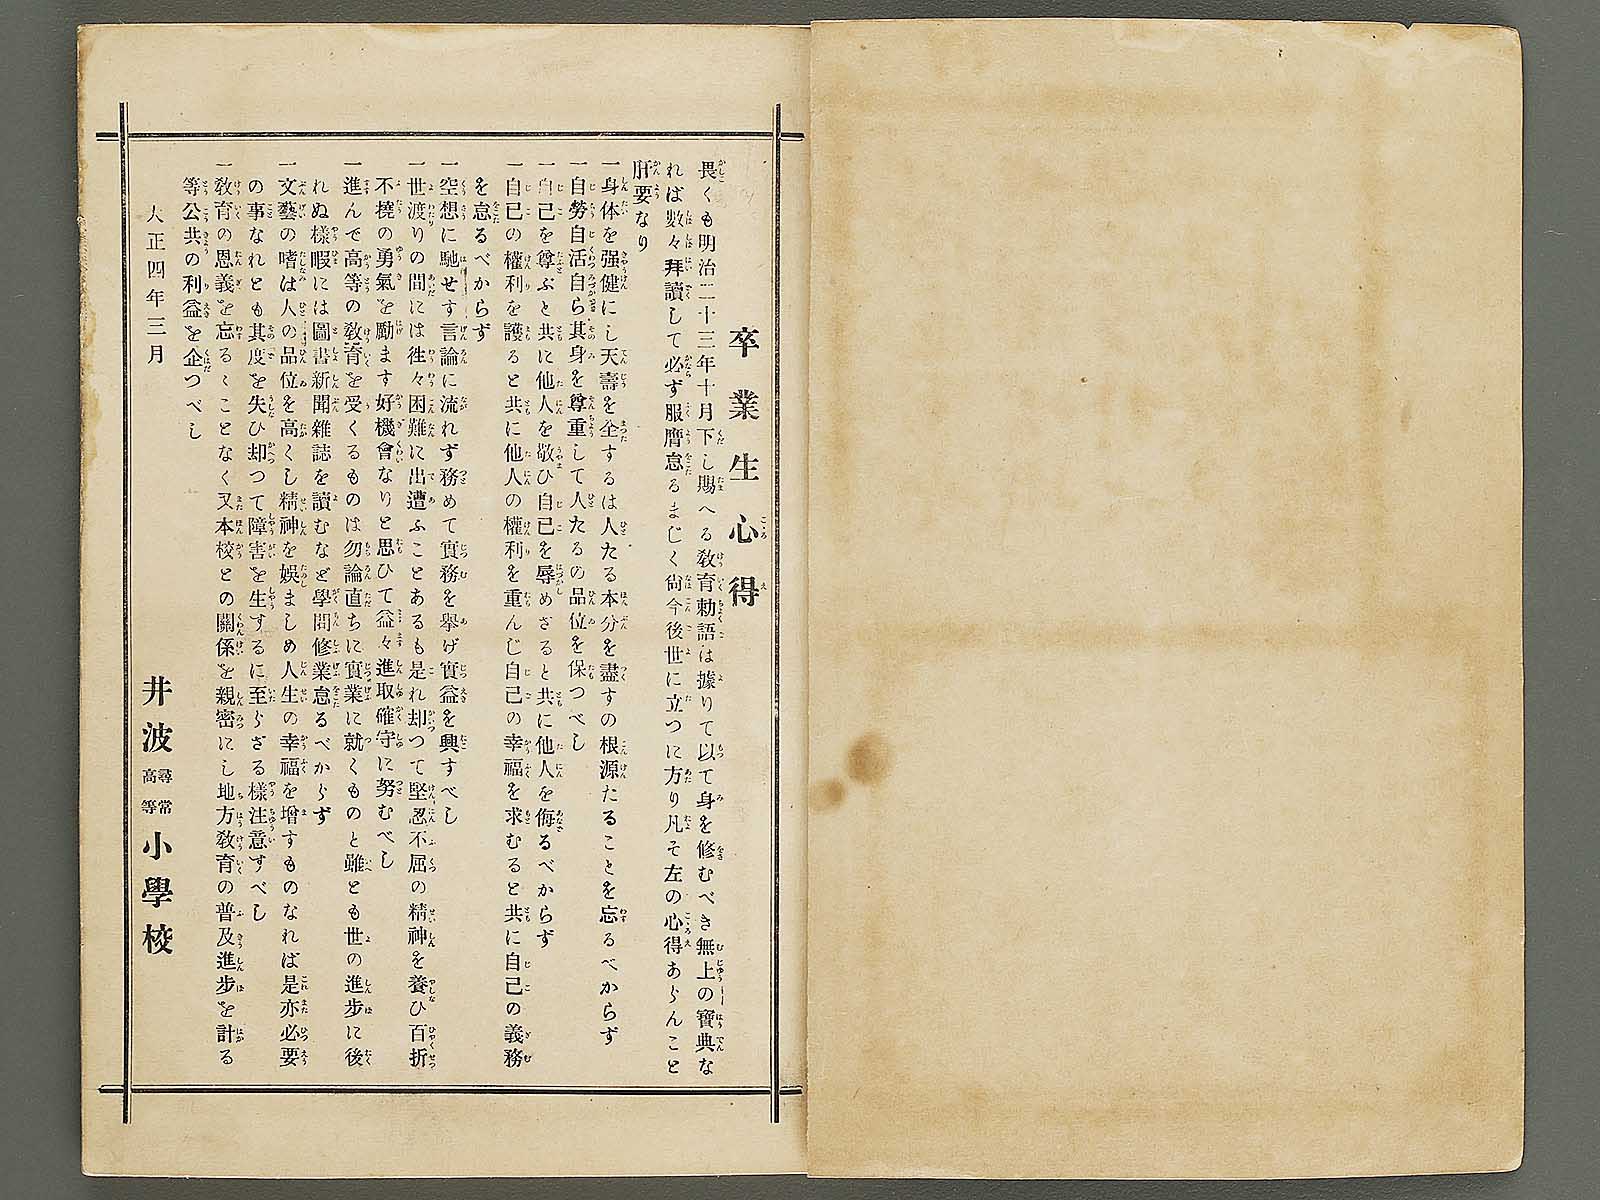 卒業生心得
畏くも明治二十三年十月下し賜へる敎育勅語は據りて以て身を修むべき無上の寶典な
れば數々拜讀して必ず服膺怠るまじく尙今後世に立つに方り凡そ左の心得あらんこと
肝要なり
一身体を强健にし天壽を全するは人たる本分を盡すの根源たることを忘るべからず
一自勞自活自ら其身を尊重して人たるの品位を保つべし
一自己を尊ぶと共に他人を敬ひ自己を辱めざると共に他人を侮るべからず
一自己の權利を護ると共に他人の權利を重んじ自己の幸福を求むると共に自己の義務
を怠るべからず
一空想に馳せす言論に流れず務めて實務を擧げ實益を興すべし
一世渡りの間には徃々困難に出遭ふことあるも是れ却つて堅忍不屈の精神を養ひ百折
不撓の勇氣を勵ます好機會なりと思ひて益々進取確守に努むべし
一進んで高等の敎育を受くるものは勿論直ちに實業に就くものと雖とも世の進步に後
れぬ樣暇には圖書新聞雜誌を讀むなど學問修業怠るべからず
一文藝の嗜は人の品位を高くし精神を娛ましめ人生の幸福を增すものなれば是亦必要
の事なれとも其度を失ひ却つて障害を生するに至らざる樣注意すべし
一敎育の恩義を忘るゝことなく又本校との關係を親密にし地方敎育の普及進步を計る
等公共の利益を企つべし
大正四年三月
井波尋常高等小學校